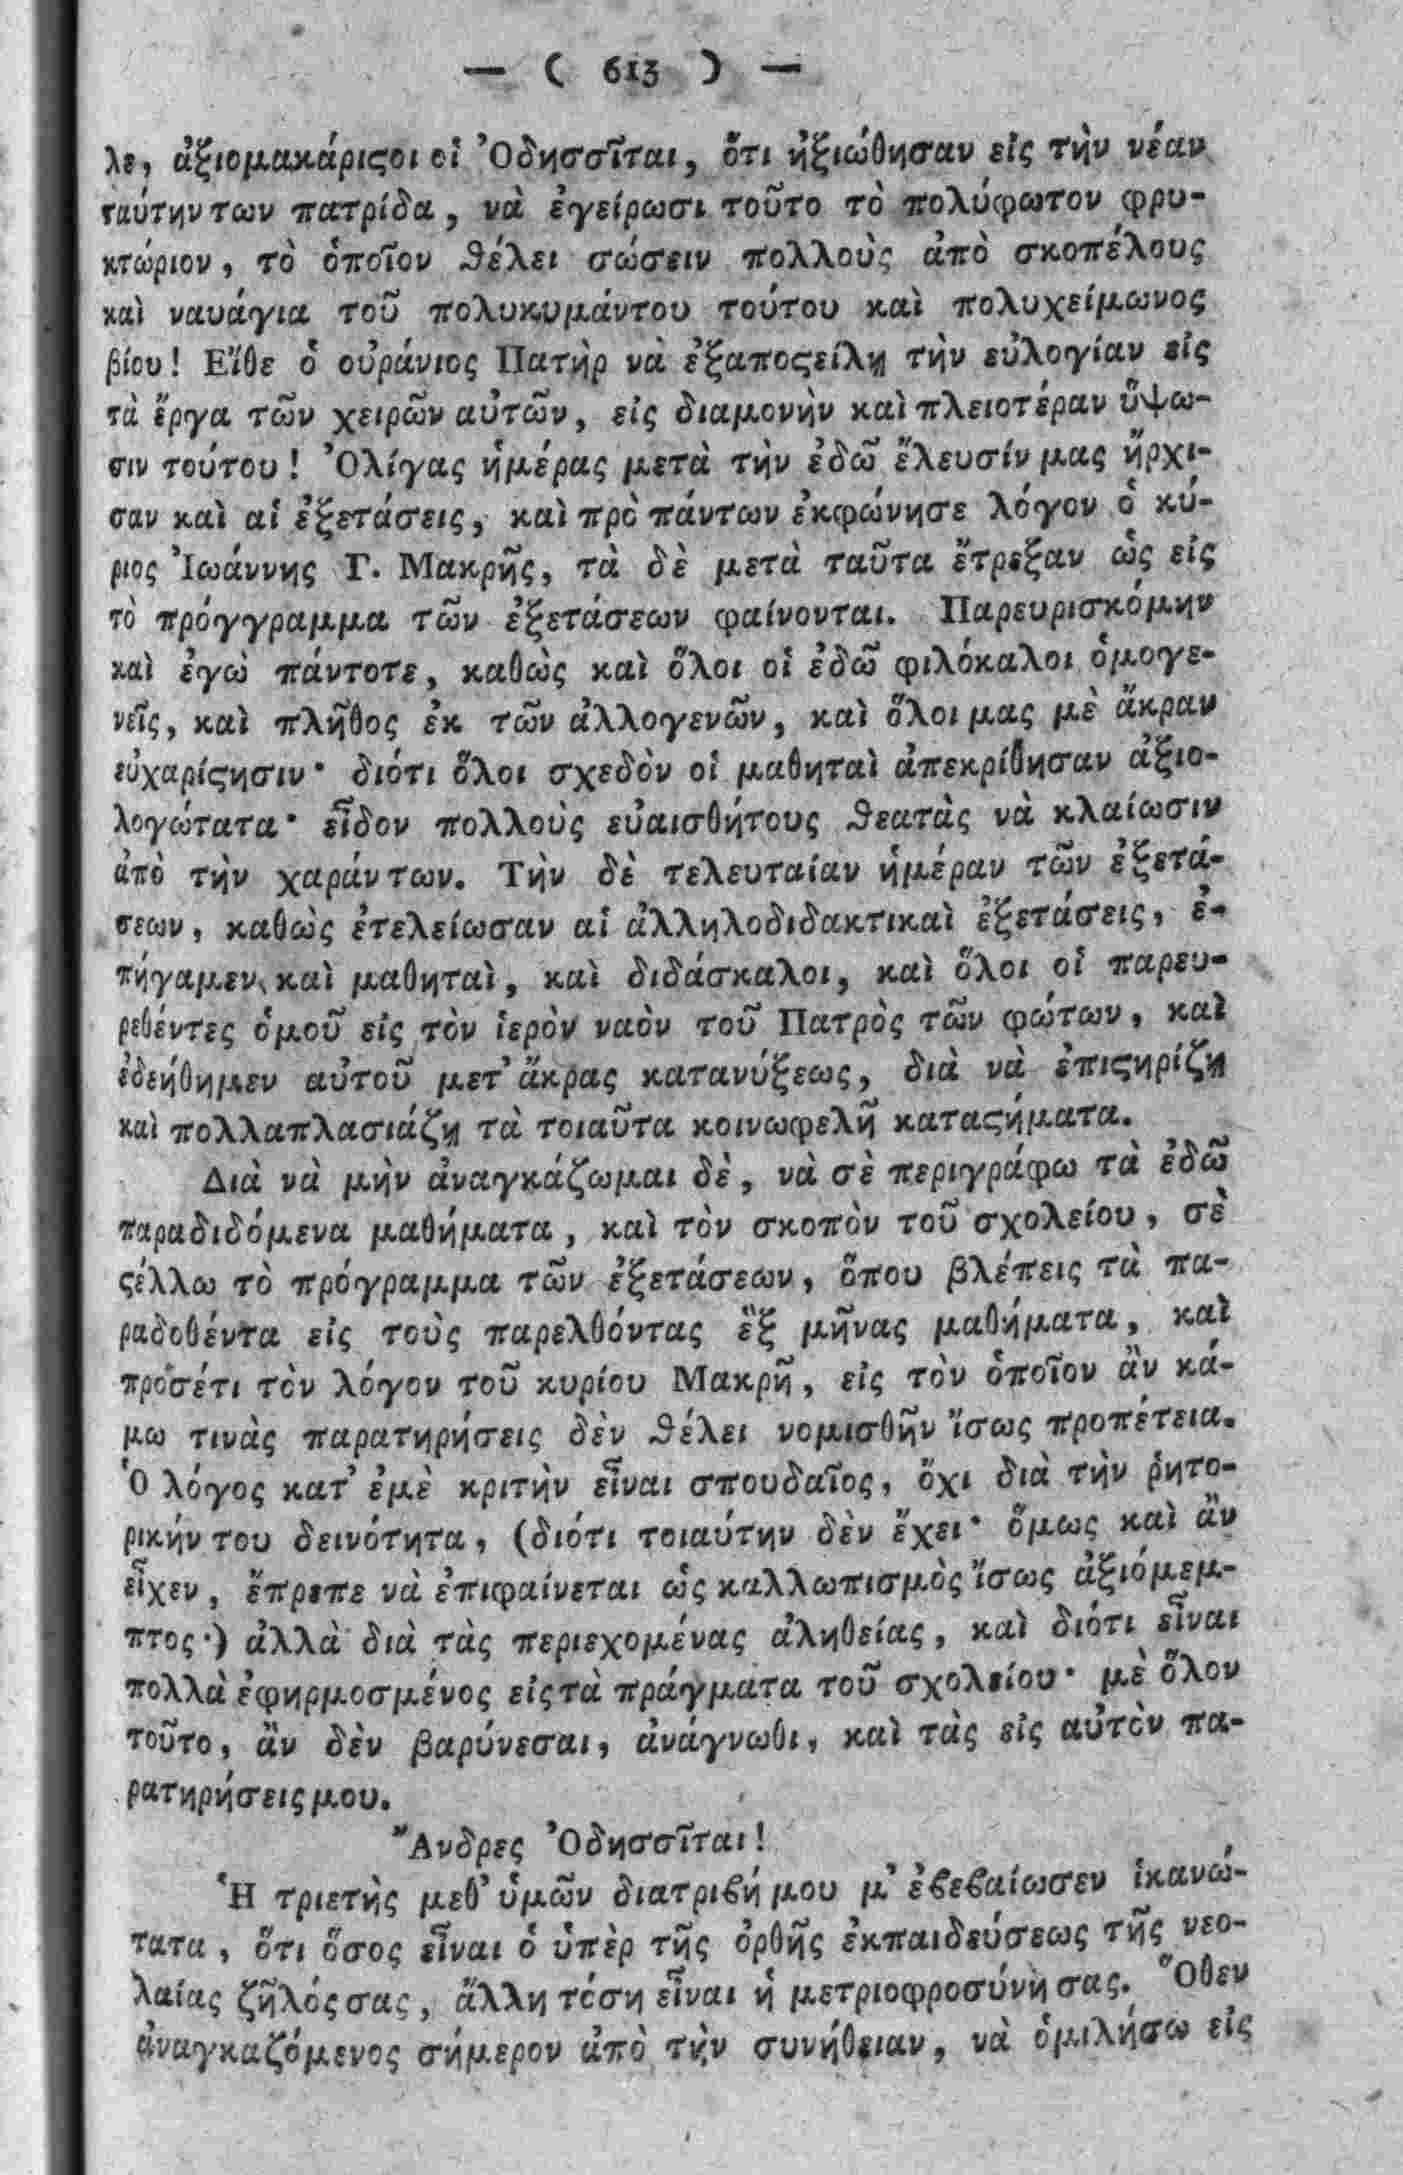 — ( 613 ) —
λε, ἀξιομακάριϛοι οἱ Ὀδησσῖται, ὅτι ἠξιώθησαν εἰς τὴν νέαν
ταύτην των πατρίδα, νὰ ἐγείρωσι τοῦτο τὸ πολύφωτον φρυ-
κτώριον, τὸ ὁποῖον θέλει σώσειν πολλοὺς ἀπὸ σκοπέλους
καὶ ναυάγια τοῦ πολυκυμάντου τούτου καὶ πολυχείμωνος
βίου! Εἴθε ὁ οὐράνιος Πατὴρ νὰ ἐξαποϛείλῃ τὴν εὐλογίαν εἰς
τὰ ἔργα τῶν χειρῶν αὐτῶν, εἰς διαμονὴν καὶ πλειοτέραν ὕψω-
σιν τούτου! Ὀλίγας ἡμέρας μετὰ τὴν ἐδῶ ἔλευσίν μας ἤρχι-
σαν καὶ αἱ ἐξετάσεις, καὶ πρὸ πάντων ἐκφώνησε λόγον ὁ κύ-
ριος Ἰωάννης Γ. Μακρῆς, τὰ δὲ μετὰ ταῦτα ἔτρεξαν ὡς εἰς
τὸ πρόγγραμμα τῶν ἐξετάσεων φαίνονται. Παρευρισκόμην
καὶ ἐγὼ πάντοτε, καθὼς καὶ ὅλοι οἱ ἐδῶ φιλόκαλοι ὁμογε-
νεῖς, καὶ πλῆθος ἐκ τῶν ἀλλογενῶν, καὶ ὅλοι μας μὲ ἄκραν
εὐχαρίϛησιν· διότι ὅλοι σχεδὸν οἱ μαθηταὶ ἀπεκρίθησαν ἀξιο-
λογώτατα· εἶδον πολλοὺς εὐαισθήτους θεατὰς νὰ κλαίωσιν
ἀπὸ τὴν χαράν των. Τὴν δὲ τελευταίαν ἡμέραν τῶν ἐξετά-
σεων, καθὼς ἐτελείωσαν αἱ ἀλληλοδιδακτικαὶ ἐξετάσεις, ἐ-
πήγαμεν καὶ μαθηταὶ, καὶ διδάσκαλοι, καὶ ὅλοι οἱ παρευ-
ρεθέντες ὁμοῦ εἰς τὸν ἱερὸν ναὸν τοῦ Πατρὸς τῶν φώτων, καὶ
ἐδεήθημεν αὐτοῦ μετ' ἄκρας κατανύξεως, διὰ νὰ ἐπιϛηρίζῃ
καὶ πολλαπλασιάζῃ τὰ τοιαῦτα κοινωφελῆ καταϛήματα.
Διὰ νὰ μὴν ἀναγκάζωμαι δὲ, νὰ σὲ περιγράφω τὰ ἐδῶ
παραδιδόμενα μαθήματα, καὶ τὸν σκοπὸν τοῦ σχολείου, σὲ
ϛέλλω τὸ πρόγραμμα τῶν ἐξετάσεων, ὅπου βλέπεις τὰ πα-
ραδοθέντα εἰς τοὺς παρελθόντας ἓξ μῆνας μαθήματα, καὶ
προσέτι τὸν λόγον τοῦ κυρίου Μακρῆ, εἰς τὸν ὁποῖον ἂν κά-
μω τινὰς παρατηρήσεις δὲν θέλει νομισθῆν ἴσως προπέτεια.
Ὁ λόγος κατ' ἐμὲ κριτὴν εἶναι σπουδαῖος, ὄχι διὰ τὴν ῥητο-
ρικήν του δεινότητα, (διότι τοιαύτην δὲν ἔχει· ὅμως καὶ ἂν
εἶχεν, ἔπρεπε νὰ ἐπιφαίνεται ὡς καλλωπισμὸς ἴσως ἀξιόμεμ-
πτος·) ἀλλὰ διὰ τὰς περιεχομένας ἀληθείας, καὶ διότι εἶναι
πολλὰ ἐφηρμοσμένος εἰς τὰ πράγματα τοῦ σχολείου· μὲ ὅλον
τοῦτο, ἂν δὲν βαρύνεσαι, ἀνάγνωθι, καὶ τὰς εἰς αὐτὸν πα-
ρατηρήσεις μου.
Ἄνδρες Ὀδησσῖται!
Ἡ τριετὴς μεθ' ὑμῶν διατριϐή μου μ' ἐϐεϐαίωσεν ἱκανώ-
τατα, ὅτι ὅσος εἶναι ὁ ὑπὲρ τῆς ὀρθῆς ἐκπαιδεύσεως τῆς νεο-
λαίας ζῆλός σας, ἄλλη τόση εἶναι ἡ μετριοφροσύνη σας. Ὅθεν
ἀναγκαζόμενος σήμερον ἀπὸ τὴν συνήθειαν, νὰ ὁμιλήσω εἰς